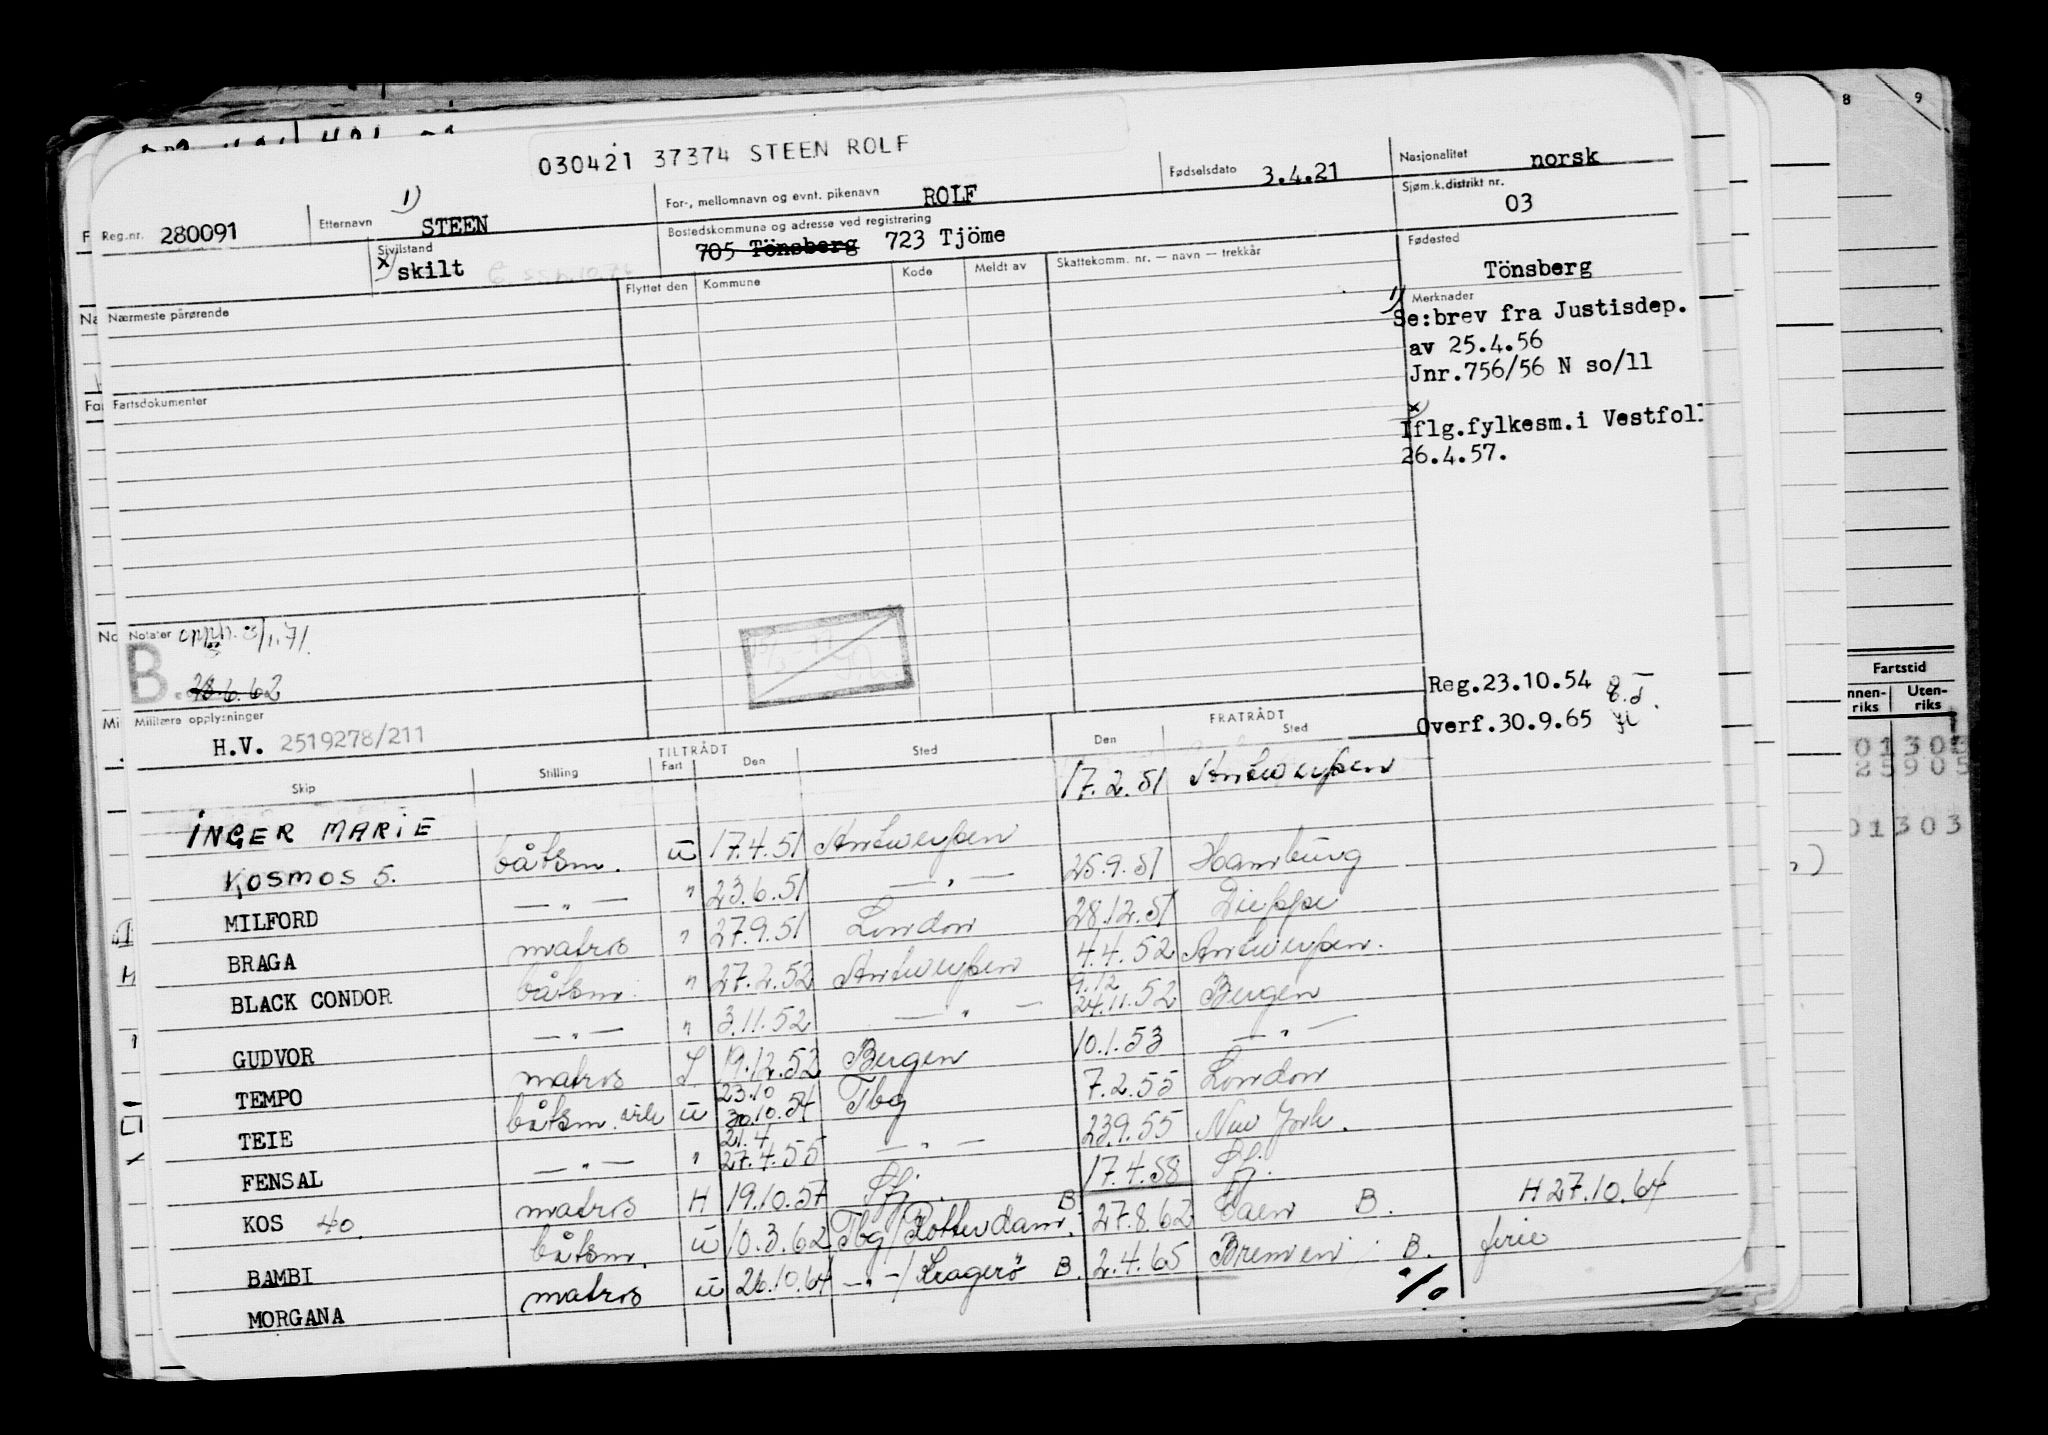 030421 37374 STEEN ROLF
Reg.nr. 280091
Etternavn 1) STEEN
For-, mellomnavn og evnt. pikenavn ROLF
Fødselsdato 3.4.21
Nasjonalitet norsk
Sivilstand x) skilt
Bostedskommune og adresse ved registrering
705 Tönsberg 723 Tjöme
Sjøm.k.distrikt nr.
03
Nærmeste pårørende
Flyttet den Kommune Kode Meldt av Skattekomm. nr. — navn — trekkår
Fødested
Tönsberg
1) Merknader
Se:brev fra Justisdep.
av 25.4.56
Jnr.756/56 N so/11
x)
Iflg.fylkesm.i Vestfol
26.4.57.
Fartsdokumenter
Notater opph. 3/1.71.
B. 28.6.62
Reg.23.10.54
Overf.30.9.65
Militære opplysninger
H.V. 2519278/211
TILTRÅDT FRATRÅDT
Skip Stilling Fart Den Sted Den Sted
17.2.51 Antwerpen
INGER MARIE båtsm. u 17.4.51 Antwerpen
KOSMOS 5. —„— " 23.6.51 —„— 25.9.51 Hamburg
MILFORD matros " 27.9.51 London 28.12.51 Dieppe
BRAGA båtsm. " 27.2.52 Antwerpen 4.4.52 Antwerpen.
BLACK CONDOR —„— " 3.11.52 —„— 9.12 24.11.52 Bergen
GUDVOR matros 19.12.52 Bergen 10.1.53 —„—
TEMPO båtsm. u 23.10 30.10.54 Tbg 7.2.55 London
TEIE —„— " 21.4 27.4.55 —„— 23.9.55 New York.
FENSAL matros H 19.10.57 Sfj. 17.4.58 Sfj.
KOS 40. båtsm. u 10.3.62 Tbg/Rotterdam. B 27.8.62 Caen B. H 27.10.64
BAMBI matros u 26.10.64 —„—/Kragerö B. 2.4.65 Bremen B. ferie
MORGANA
%
8 9
Fartstid
nnen-riks Uten-riks
01303
25905
01303